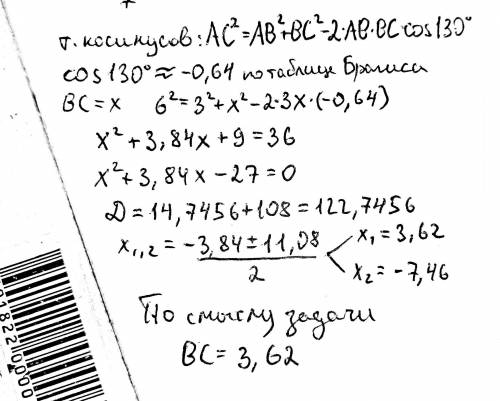 т. косинусов: AC²=AB²+BC²-2·AB·BC cos130°
cos 130°≈-0,64 по таблице Брадиса
BC=x 6²=3²+x²-2·3x·(-0,64)
x²+3,84x+9=36
x²+3,84x-27=0
D=14,7456+108=122,7456
x₁,₂ = (-3,84±11,08)/2 < x₁=3,62 x₂=-7,46
По смыслу задачи
BC=3,62